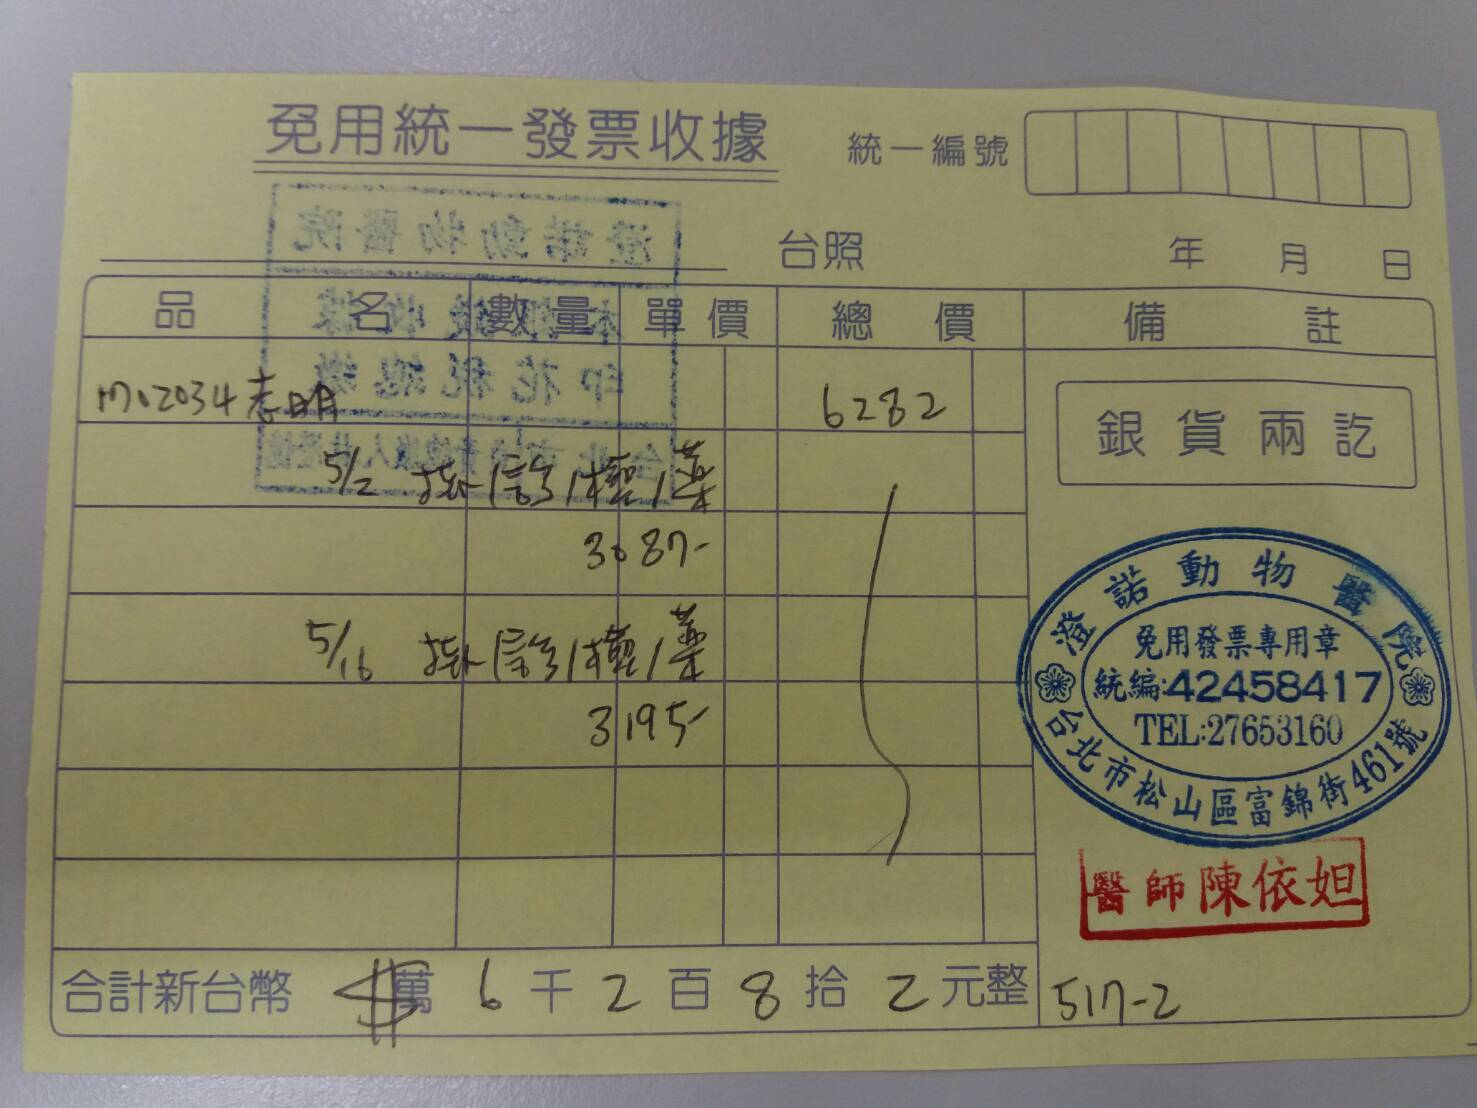 免用統一發票收據
統一編號
台照
年 月 日
澄諾動物醫院
本張收據
印花稅總繳
品 名 數量 單價 總 價 備 註
M02034志明 6282
銀貨兩訖
5/2 掛/診/檢/藥
3087-
5/16 掛/診/檢/藥
3195-
澄諾動物醫院
免用發票專用章
統編:42458417
TEL:27653160
台北市松山區富錦街461號
醫師陳依妲
合計新台幣 $萬 6 千 2 百 8 拾 2 元整
517-2